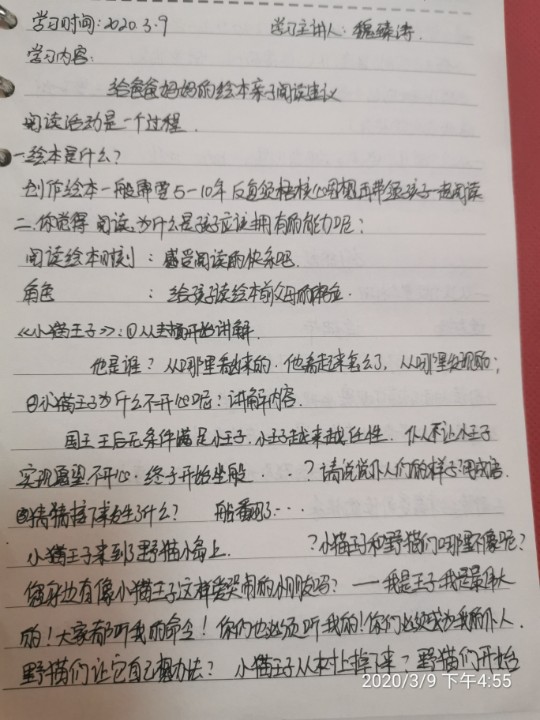 学习时间:2020.3.9 学习主讲人:魏臻涛.
学习内容:
给爸爸妈妈的绘本亲子阅读建议
阅读活动是一个过程.
一.绘本是什么?
创作绘本一般需要5-10年反复 核心思想再带 孩子一起阅读
二.你觉得阅读,为什么是孩子应该拥有的能力呢:
阅读绘本时刻:感受阅读的快乐吧.
角色:给孩子读绘本前父母的
《小猫王子》:①从封面开始讲解.
他是谁?从哪里看出来的.他看起来怎么了,从哪里发现的;
②小猫王子为什么不开心呢?讲解内容.
国王王后无条件满足小王子.小王子越来越任性.仆人不让小王子
实现愿望不开心.终于开始坐船.....?请说说仆人们的样子?用成语.
③猜猜接下来发生了什么?船翻了...
小猫王子来到了野猫小岛上.?小猫王子和野猫们哪里不像呢?
您身边有像小猫王子这样爱哭闹的小朋友吗?——我是王子我是最厉人
的!大家都听我的命令!你们也必须听我的!你们必须成为我的仆人.
野猫们让它自己想办法?小猫王子从树上掉下来?野猫们开始
2020/3/9 下午4:55